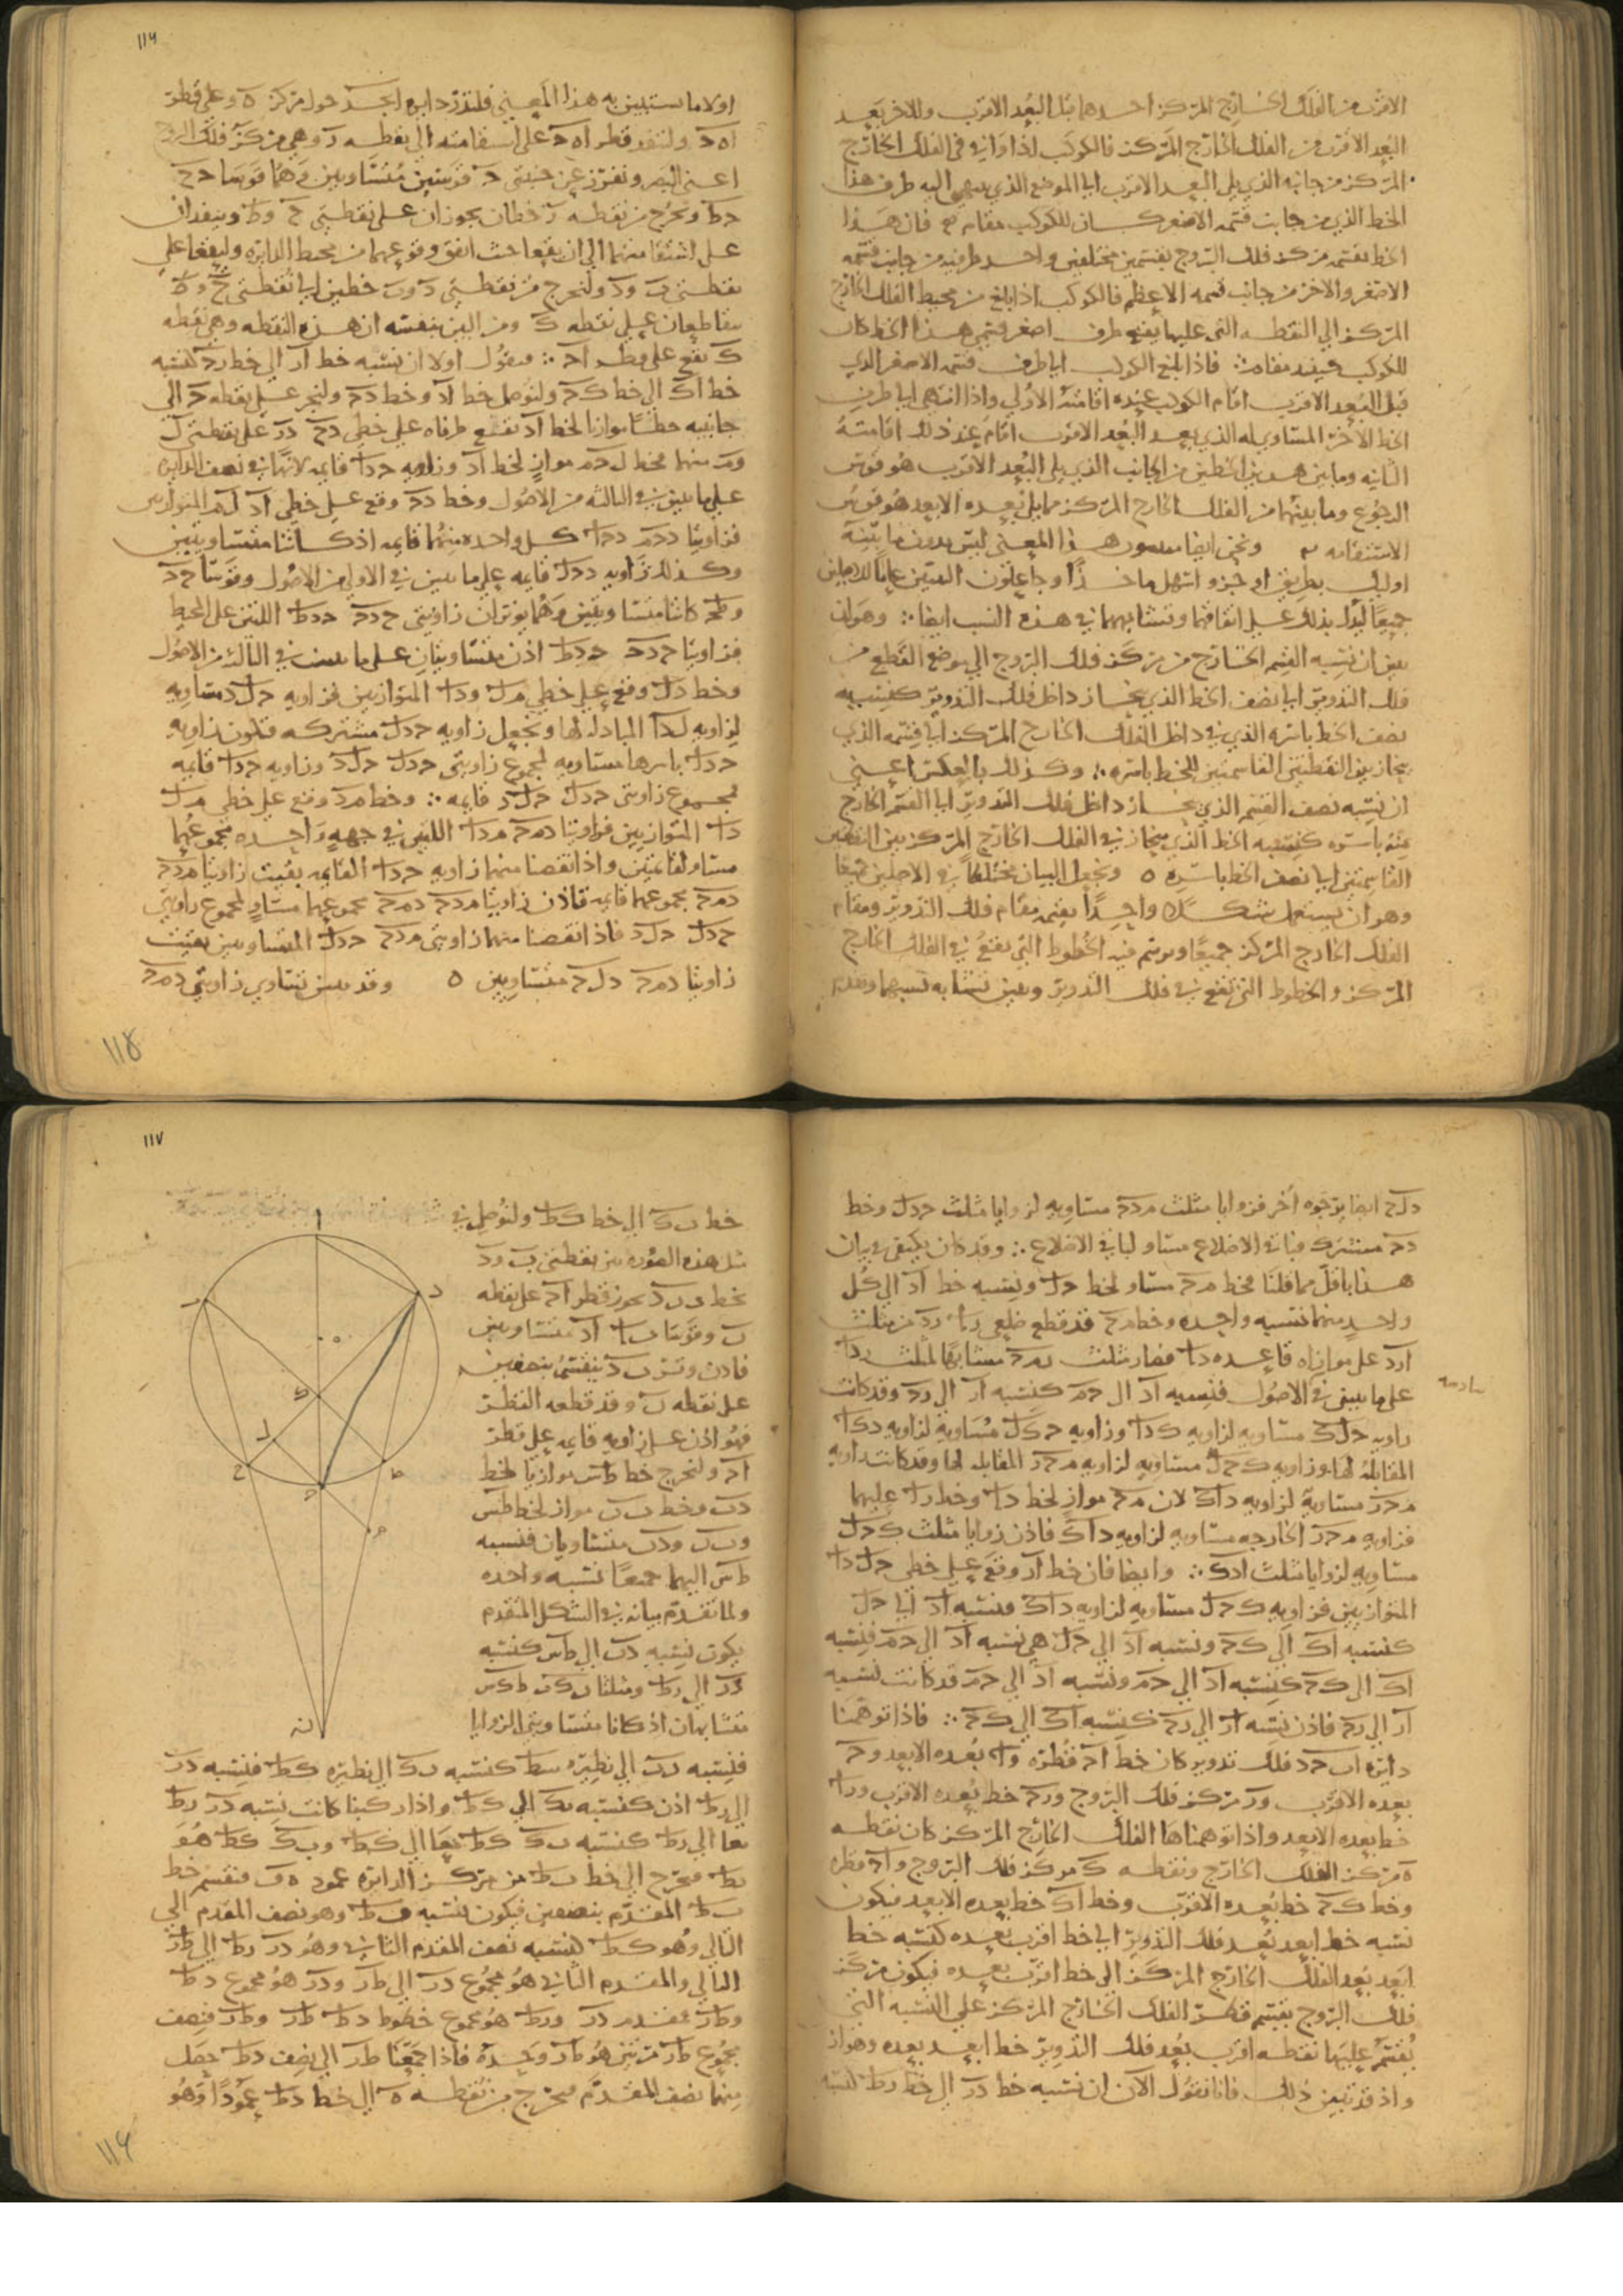 الاقرب من الفلك الخارج المركز احدهما قبل البعد الاقرب والاخر بعيد
البعد الاقرب من الفلك الخارج المركز فالكوكب اذا وافى في الفلك الخارج
المركز من جانبه الذي يلي البعد الاقرب ايا الموضع الذي ينتهي اليه طرف هذا
الخط الذي من جانب قسمه الاصغر كان للكوكب مقام فان هذا
الخط يقسمه مركز فلك البروج بقسمين مختلفين واحد طرفيه من جانب قسمه
الاصغر والاخر من جانب قسمه الاعظم فالكوكب اذا بلغ من محيط الفلك الخارج
المركز الي النقطه التي عليها يقع طرف اصغر قسمي هذا الخط كان
للكوكب حينيذ مقامه فاذا بلغ الكوكب ايا طرف قسمه الاصغر الذي
قبل البعد الاقرب اقام الكوكب عنده اقامته الاولي واذا انتهى ايا طرف
الخط الاخر المساوي له الذي بعد البعد الاقرب اقام عند ذلك اقامته
الثانيه وما بين هذين الخطين من الجانب الذي يلي البعد الاقرب هو قوس
الرجوع وما بينهما من الفلك الخارج المركز مما يلي بعده الابعد هو قوس
الاستقامه ونحن ايضا هذا المعنى ليس بدون ما بينه
اولينس بطريق اوجز واسهل ماخذا وجاعلون عاما للاصلين
جميعا ليدل بذلك على اتفاقهما وتشابههما في هذه النسب ايضا وهو ان
نبين ان نسبه القسم الخارج من مركز فلك البروج الي موضع القطع من
فلك التدوير ايا نصف الخط الذي ينحاز داخل فلك التدوير كنسبه
نصف الخط باسره الذي في داخل الفلك الخارج المركز ايا قسمه الذي
ينحاز بين النقطتين القاسمتين للخط باسره وكذلك بالعكس اعني
ان نسبه نصف القسم الذي ينحاز داخل فلك التدوير ايا القسم الخارج
منه باسره كنسبه الخط الذي ينحاز في الفلك الخارج المركز بين النقطتين
القاسمتين ايا نصف الخط باسره ٥ ونجعل البيان مختلطا في الاصلين جميعا
وهو ان يستعمل شكلا واحدا يقيم مقام فلك التدوير ومقام
الفلك الخارج المركز جميعا ويرسم فيه الخطوط التي تقع في الفلك الخارج
المركز والخطوط التي تقع في فلك التدوير ونبين تشابه نسبهما ونقدم
١١٦
اولا ما يستبين به هذا المعنى فلتدر دايره ابجد حول مركز ه وعلى قطر
اه ح ولننفذ قطر اه ح على استقامته الى نقطه ر وهي مركز فلك البروج
اعني البصر ونفرز عن جنبتي ح قوسين متساويين وهما قوسا ح ح
ح ط ونخرج من نقطه ر خطان يجوزان على نقطتي ح وط وينفذان
على استقامتهما الي ان يقعا حيث اتفق وقوعهما من محيط الدايره وليقعا على
نقطتي ب ود ولنخرج من نقطتي د وب خطين ايا نقطتي ح وط
يتقاطعان على نقطه ك ومن البين بنفسه ان هذه النقطه وهي نقطه
ك تقع على قطر اح فنقول اولا ان نسبه خط ار الى خط رح كنسبه
خط اك الى خط ك ح ولنوصل خط اد وخط د ح ولنجر على نقطه ح الي
جانبيه خطا موازيا لخط اد تقع طرفاه على خطي د ح در على نقطتي ل
وم منهما فخط ل ح م مواز لخط اد وزاويه ح دا قايمه لانها في نصف الدايره
على ما تبين في الثالثه من الاصول وخط د ح وقع على خطي اد لم المتوازيين
فزاويتا د ح م د ح ل كل واحده منهما قايمه اذ كانتا متساويتين
وكذلك زاويه د ح ل قايمه على ما تبين في الاولي من الاصول وقوسا ح ح
وط ح كانتا متساويتين وهما يوتران زاويتي ح د ح ح د ط اللتين على المحيط
فزاويتا ح د ح ح د ط اذن متساويتان على ما تبين في الثالثه من الاصول
وخط د ل وقع على خطي م ل ودا المتوازيين فزاويه ح ل د متساويه
لزاويه ل دا المبادله لها ونجعل زاويه ح د ل مشتركه فتكون زاويه
ح دا باسرها متساويه لمجموع زاويتي ح د ل ح ل د وزاويه ح دا قايمه
فمجموع زاويتي ح د ل ح ل د قايمه وخط م د وقع على خطي م ل
دا المتوازيين فزاويتا د م ح م دا اللتين في جهه واحده مجموعهما
مساو لقايمتين واذا نقصنا منهما زاويه ح دا القايمه بقيت زاويتا م د ح
د م ح مجموعهما قايمه فاذن زاويتا م د ح د م ح مجموعهما مساو لمجموع زاويتي
ح د ل ح ل د فاذا نقصنا منهما زاويتي م د ح ح د ل المتساويتين بقيت
زاويتا د م ح د ل ح متساويتين ٥ وقد تبين تساوي زاويتي د م ح
١١٨
د ل ح ايضا بوجوه اخر فزوايا مثلث م د ح مساويه لزوايا مثلث ح د ل وخط
د ح مشترك وباقي الاضلاع مساو لباقي الاضلاع وقد كان يكتفى في بيان
هذا باقل مما قلنا فخط م ح مساو لخط ح ل ونسبه خط اد الي كل
واحد منهما نسبه واحده وخط م ح قد قطع ضلعي را رد من مثلث
ارد على موازاه قاعده دا فصار مثلث ر م ح مشابها لمثلث ردا
على ما تبين في الاصول فنسبه اد ال ح م كنسبه ار الي رح وقد كانت
زاويه ح ل ك مساويه لزاويه ك دا وزاويه ح ك ل مساويه لزاويه د ك ا
المقابله لها وزاويه ك ح ل مساويه لزاويه م ح ر المقابله لها وقد كانت زاويه
م ح ر مساويه لزاويه داك لان م ح مواز لخط دا وخط را عليهما
فزاويه م ح ر الخارجه مساويه لزاويه داك فاذن زوايا مثلث ك ح ل
مساويه لزوايا مثلث ادك وايضا فان خط ار وقع على خطي ح ل دا
المتوازيين فزاويه ك ح ل مساويه لزاويه داك فنسبه اد ايا ح ل
كنسبه اك الي ك ح ونسبه اد الي ح ل هي نسبه اد الي ح م فنسبه
اك الى ك ح كنسبه اد الي ح م ونسبه اد الي ح م قد كانت نسبه
ار الي رح فاذن نسبه ار الي رح كنسبه اك الي ك ح فاذا توهمنا
دايره اب ح د فلك تدوير كان خط اح قطره وا بعده الابعد وح
بعده الاقرب ور مركز فلك البروج ورح خط بعده الاقرب ورا
خط بعده الابعد واذا توهمناها الفلك الخارج المركز كان نقطه
ه مركز الفلك الخارج ونقطه ك مركز فلك البروج واح قطره
وخط ك ح خط بعده الاقرب وخط اك خط بعده الابعد فيكون
نسبه خط ابعد بعد فلك التدوير الي خط اقرب بعده كنسبه خط
ابعد بعد الفلك الخارج المركز الى خط اقرب بعده فيكون مركز
فلك البروج يقسم قطر الفلك الخارج المركز على النسبه التي
يقسم عليها نقطه اقرب بعد فلك التدوير خط ابعد بعده وهو ار
واذ قد تبين ذلك فانا نقول الان ان نسبه خط در الى خط رط كنسبه
سادسه
١١٧
خط ب ك الى خط ك ط ولنوصل في
مثل هذه الصوره بين نقطتي ب ود
بخط د ن ب يجوز قطر اح على نقطه
ن وقوسا ب ا اد متساويتين
فاذن وتر ب د ينقسم بنصفين
على نقطه ن وقد قطعه القطر
فهو اذن على زاويه قايمه على قطر
اح ولنخرج خط ط س موازيا لخط
د ن وخط ب ن مواز لخط ط س
وب ن ود ن متساويان فنسبه
ط س اليهما جميعا نسبه واحده
ولما تقدم بيانه في الشكل المتقدم
يكون نسبه د ن الى ط س كنسبه
در الي رط ومثلثا ب ك ن ط ك س
متشابهان اذ كانا متساويي الزوايا
فنسبه ب ن الي نظيره س ط كنسبه ب ك الى نظيره ك ط فنسبه در
الي رط اذن كنسبه ب ك الي ك ط واذا ركبنا كانت نسبه در رط
معا الي رط كنسبه ب ك ك ط معا الي ك ط وب ك ك ط هو
ب ط فنخرج الي خط ب ط من مركز الدايره عمود ه ف فنقسم خط
ب ط المقدم بنصفين فيكون نسبه ف ط وهو نصف المقدم الي
التالي وهو ك ط كنسبه نصف المقدم الثاني وهو در رط الي ط ر
التالي والمقدم الثاني هو مجموع در الي ط ر ودر هو مجموع د ط
وط ر فمقدم در ورط هو مجموع خطوط د ط ط ر وط ر فنصف
مجموع ط ر مرتين هو ط ر وحده فاذا جمعنا ط ر الي نصف د ط حصل
منهما نصف المقدم فنخرج من نقطه ه الي خط د ط عمودا وهو
ا
د
ب
ه
ك
ل
ح
ط
ح
م
ر
١١٩